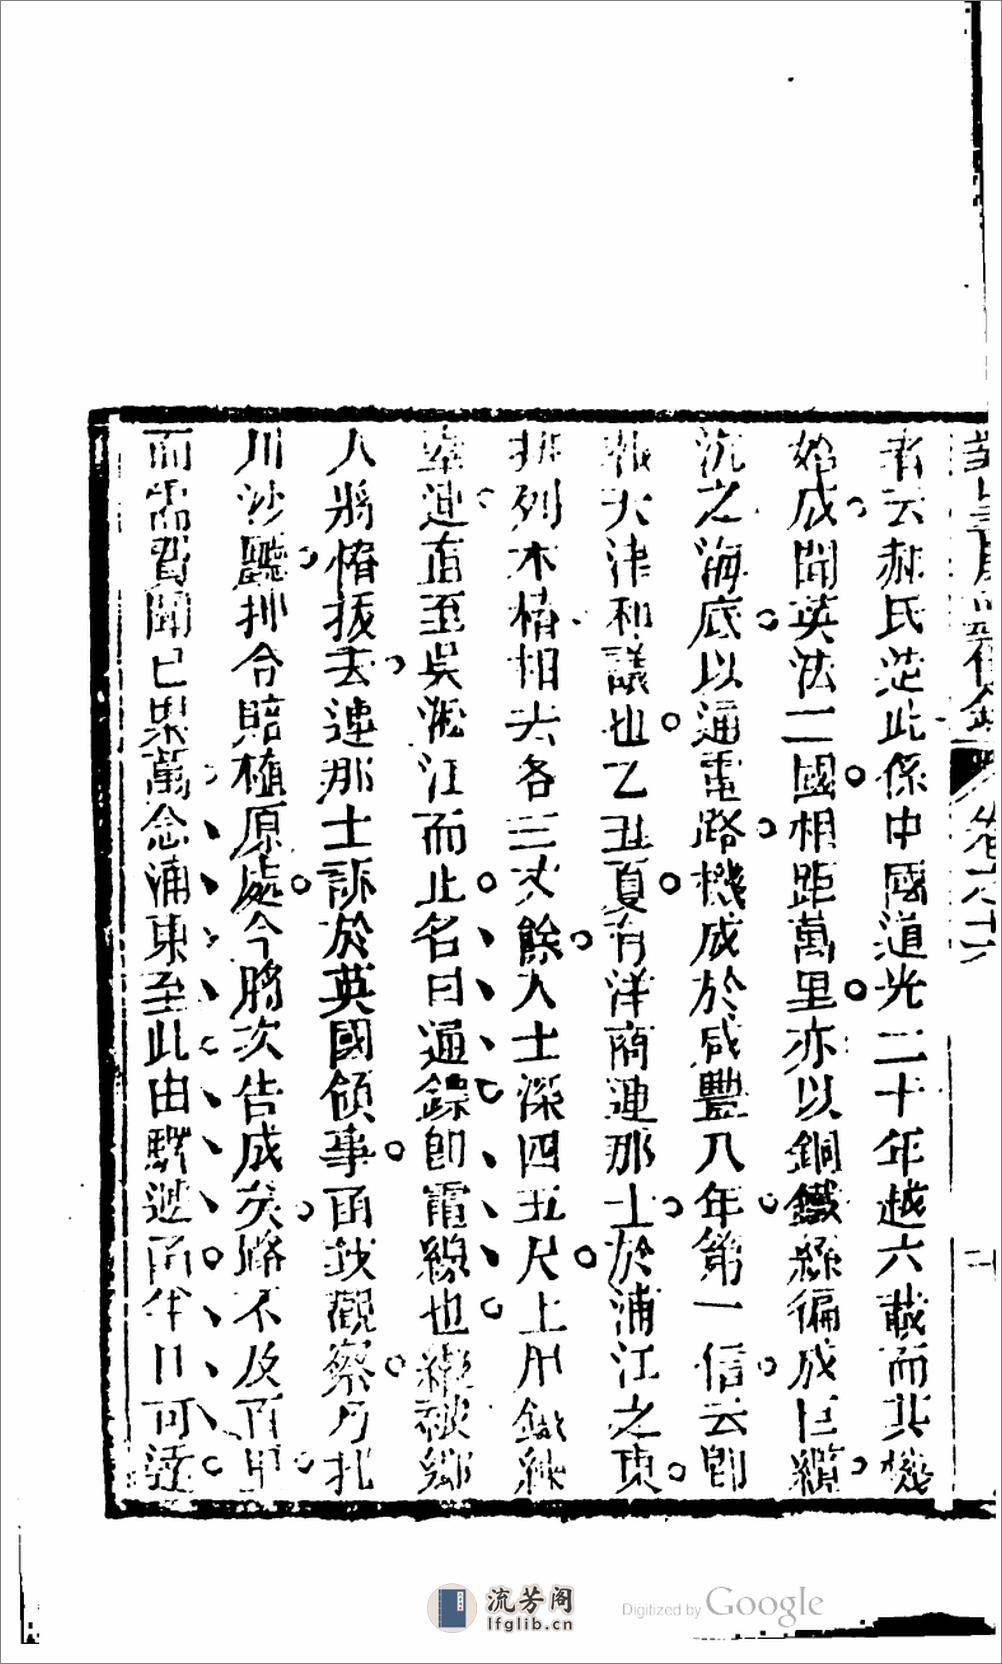 者云赫氏造此係中國道光二十年越六載而其機
始成聞英法二國相距萬里亦以銅鐵絲徧成巨纜
沉之海底以通電路機成於咸豐八年第一信云卽
報大津和議也乙丑夏有洋商連那士於浦江之東
排列木樁相去各三丈餘入土深四五尺上用鐵線
牽連直至吳淞江而止名曰通鏢卽電線也纔被鄉
人將樁拔去連那士訴於英國領事函致觀察乃札
川沙廳押令賠植原處今將次告成矣路不及百里
而需習聞已界萬念浦東至此由驛遞函半日可達
流芳阁
lfglib.cn
Digitized by Google